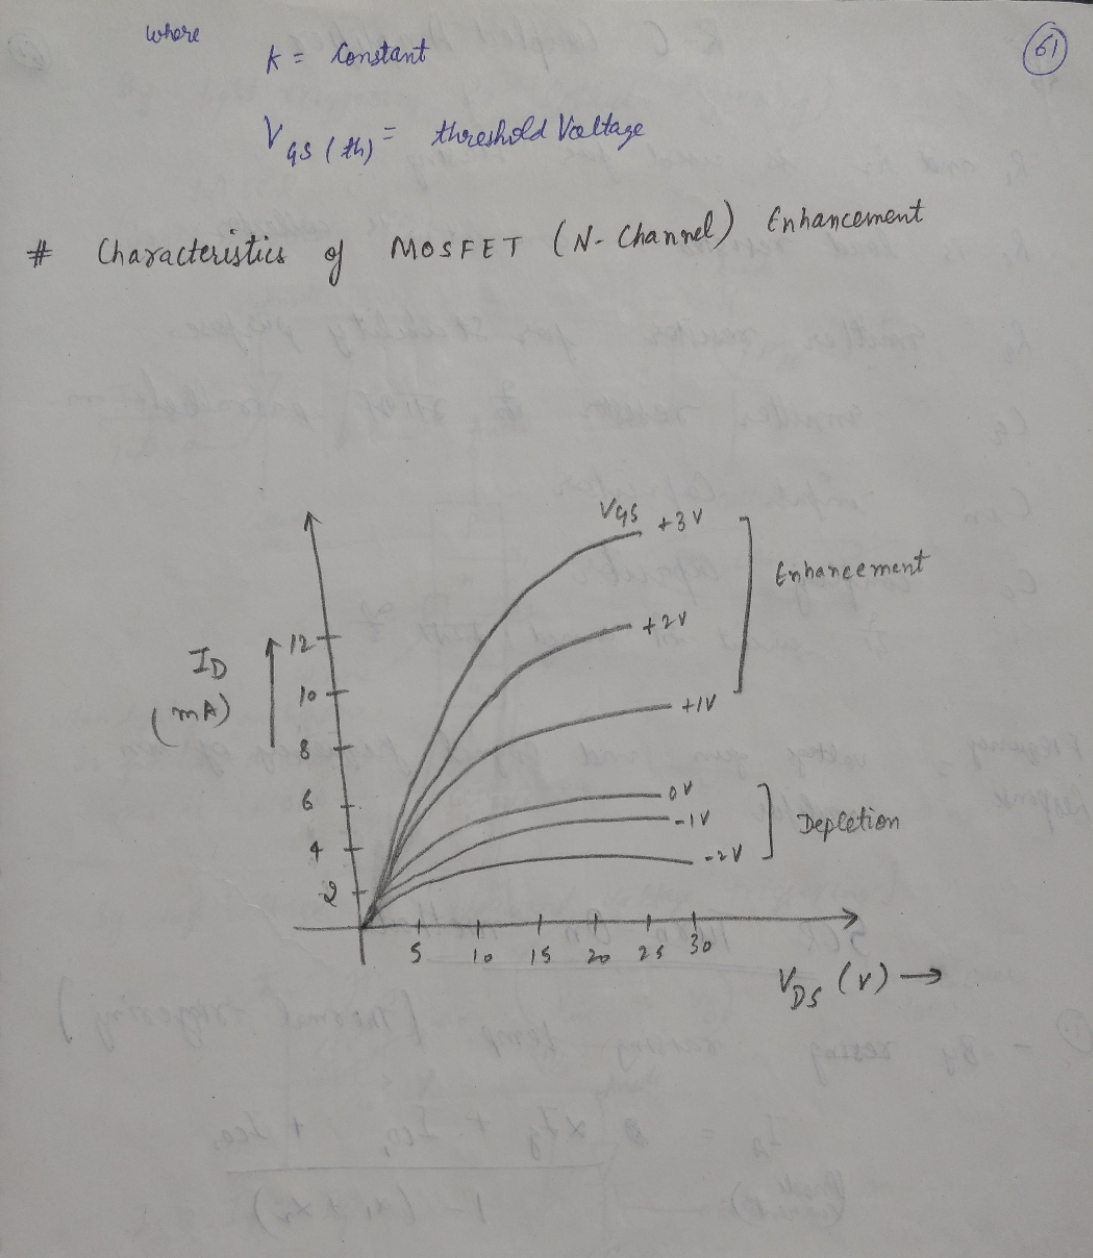 where
61
k = Constant
VGS (th) = threshold Voltage
# Characteristics of MOSFET (N-Channel) Enhancement
VGS +3V
Enhancement
+2V
12
ID
(mA)
10
+1V
8
6
0V
-1V
Depletion
4
-2V
2
5 10 15 20 25 30
VDS (V) →